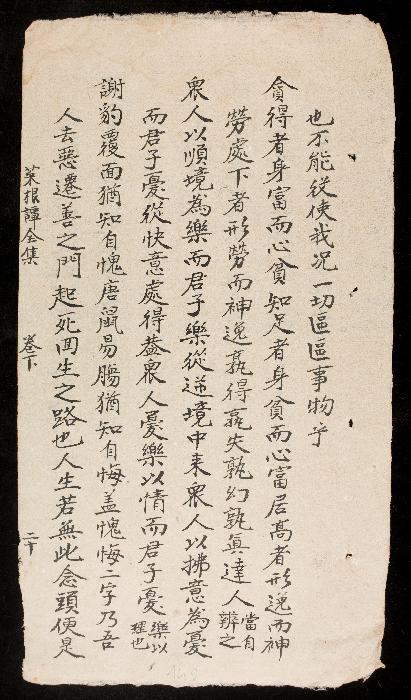 也不能役使我况一切區區事物乎
貪得者身富而心貧知足者身貧而心富居高者形逸而神
勞處下者形勞而神逸孰得孰失孰幻孰真達人當自辨之
衆人以順境為樂而君子樂從逆境中来衆人以拂意為憂
而君子憂從快意處得葢衆人憂樂以情而君子憂樂以理也
謝豹覆面猶知自愧唐鼠易膓猶知自悔盖愧悔二字乃吾
人去惡遷善之門起死囬生之路也人生若無此念頭便是
菜根譚全集 卷下 二十